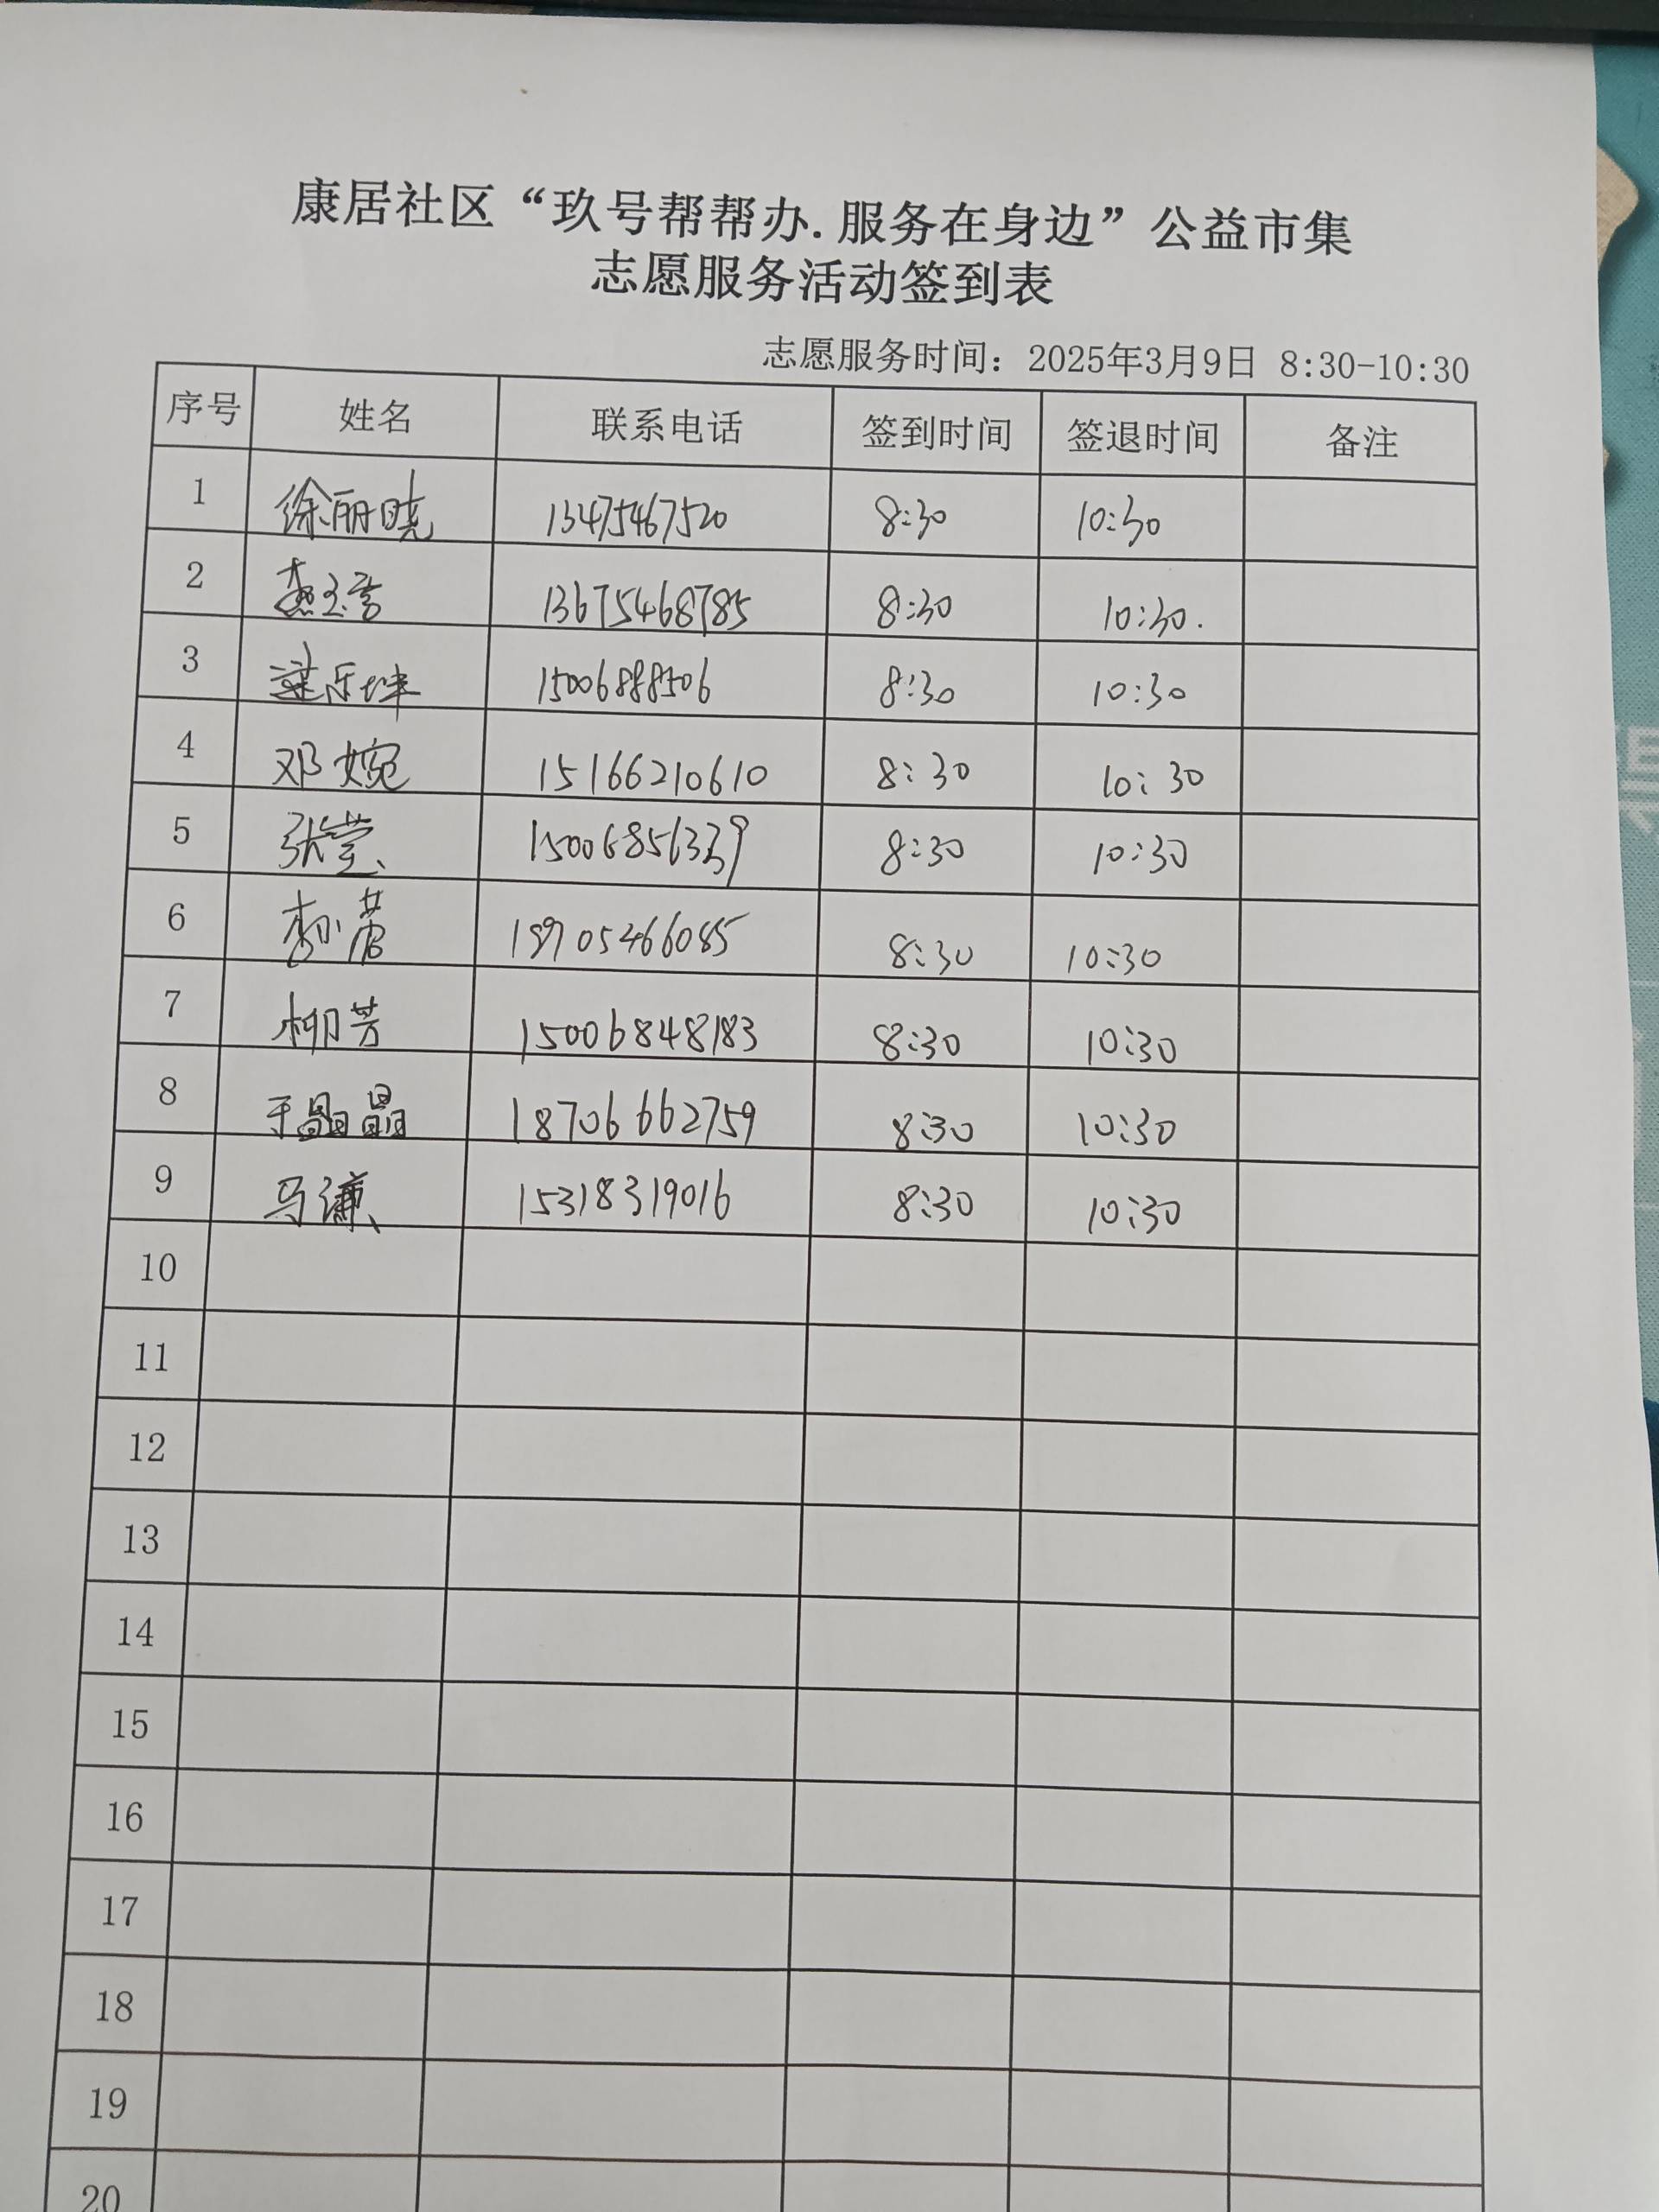 康居社区“玖号帮帮办.服务在身边”公益市集
志愿服务活动签到表
志愿服务时间：2025年3月9日 8:30-10:30
序号 姓名 联系电话 签到时间 签退时间 备注
1 徐丽晓 13475467520 8:30 10:30
2 13675468785 8:30 10:30.
3 15006888506 8:30 10:30
4 邓婉 15166210610 8:30 10:30
5 张莹 15006856339 8:30 10:30
6 18705466085 8:30 10:30
7 柳芳 15006848183 8:30 10:30
8 于晶晶 18706662759 8:30 10:30
9 马谦 15318319016 8:30 10:30
10
11
12
13
14
15
16
17
18
19
20